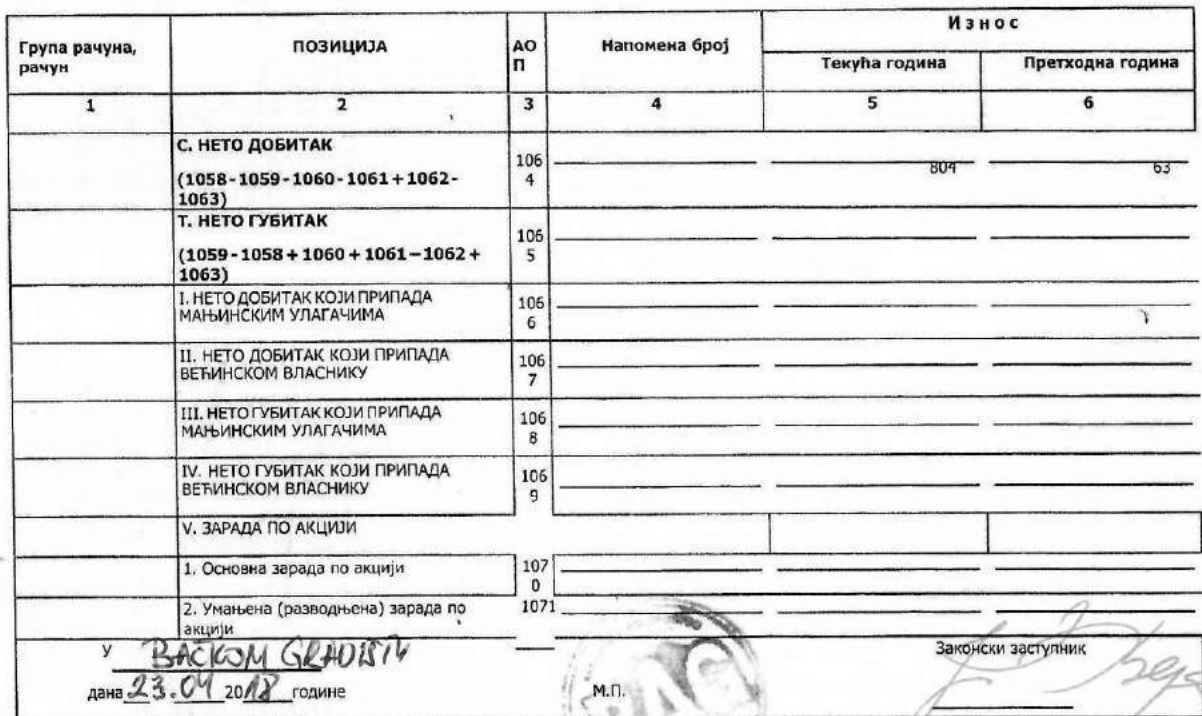 Група рачуна, рачун
ПОЗИЦИЈА
АО П
Напомена број
Износ
Текућа година
Претходна година
1 2 3 4 5 6
С. НЕТО ДОБИТАК
(1058-1059-1060-1061+1062-
1063)
106
4
804 63
Т. НЕТО ГУБИТАК
(1059-1058+1060+1061−1062+
1063)
106
5
I. НЕТО ДОБИТАК КОЈИ ПРИПАДА
МАЊИНСКИМ УЛАГАЧИМА
106
6
II. НЕТО ДОБИТАК КОЈИ ПРИПАДА
ВЕЋИНСКОМ ВЛАСНИКУ
106
7
III. НЕТО ГУБИТАК КОЈИ ПРИПАДА
МАЊИНСКИМ УЛАГАЧИМА
106
8
IV. НЕТО ГУБИТАК КОЈИ ПРИПАДА
ВЕЋИНСКОМ ВЛАСНИКУ
106
9
V. ЗАРАДА ПО АКЦИЈИ
1. Основна зарада по акцији
107
0
2. Умањена (разводњена) зарада по
акцији
1071
У BAČKOM GRADIŠTU
Законски заступник
дана 23.04 2018 године
М.П.